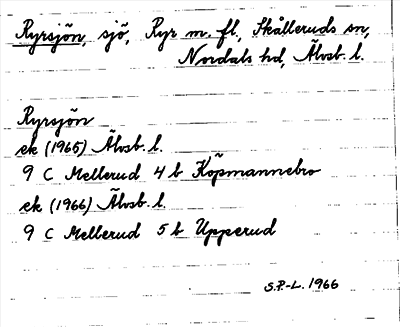 Ryrsjön, sjö, Ryr m. fl., Skålleruds sn,
Nordals hd, Älvsb. l.
Ryrsjön
ek (1965) Älvsb. l.
9 C Mellerud 4 b Köpmannebro
ek (1966) Älvsb. l.
9 C Mellerud 5 b Upperud
S.P.-L. 1966